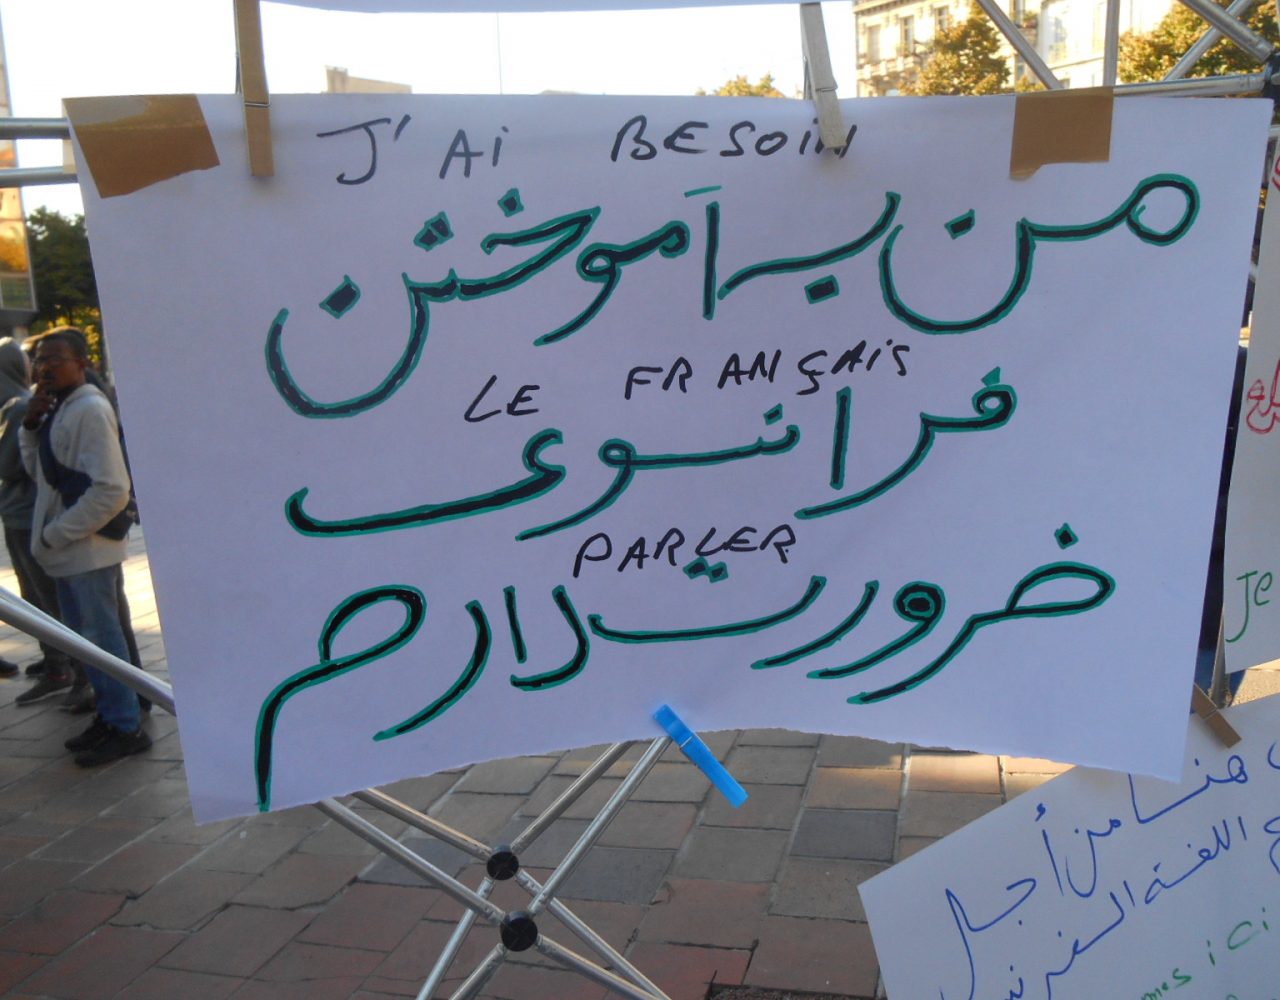 J'Ai BESOiN
من به آموختن
LE FRANÇAiS
فرانسوی
PARLER
ضرورت دارم
Je
هنا من أجل
اللغة الفرنس
mes ici